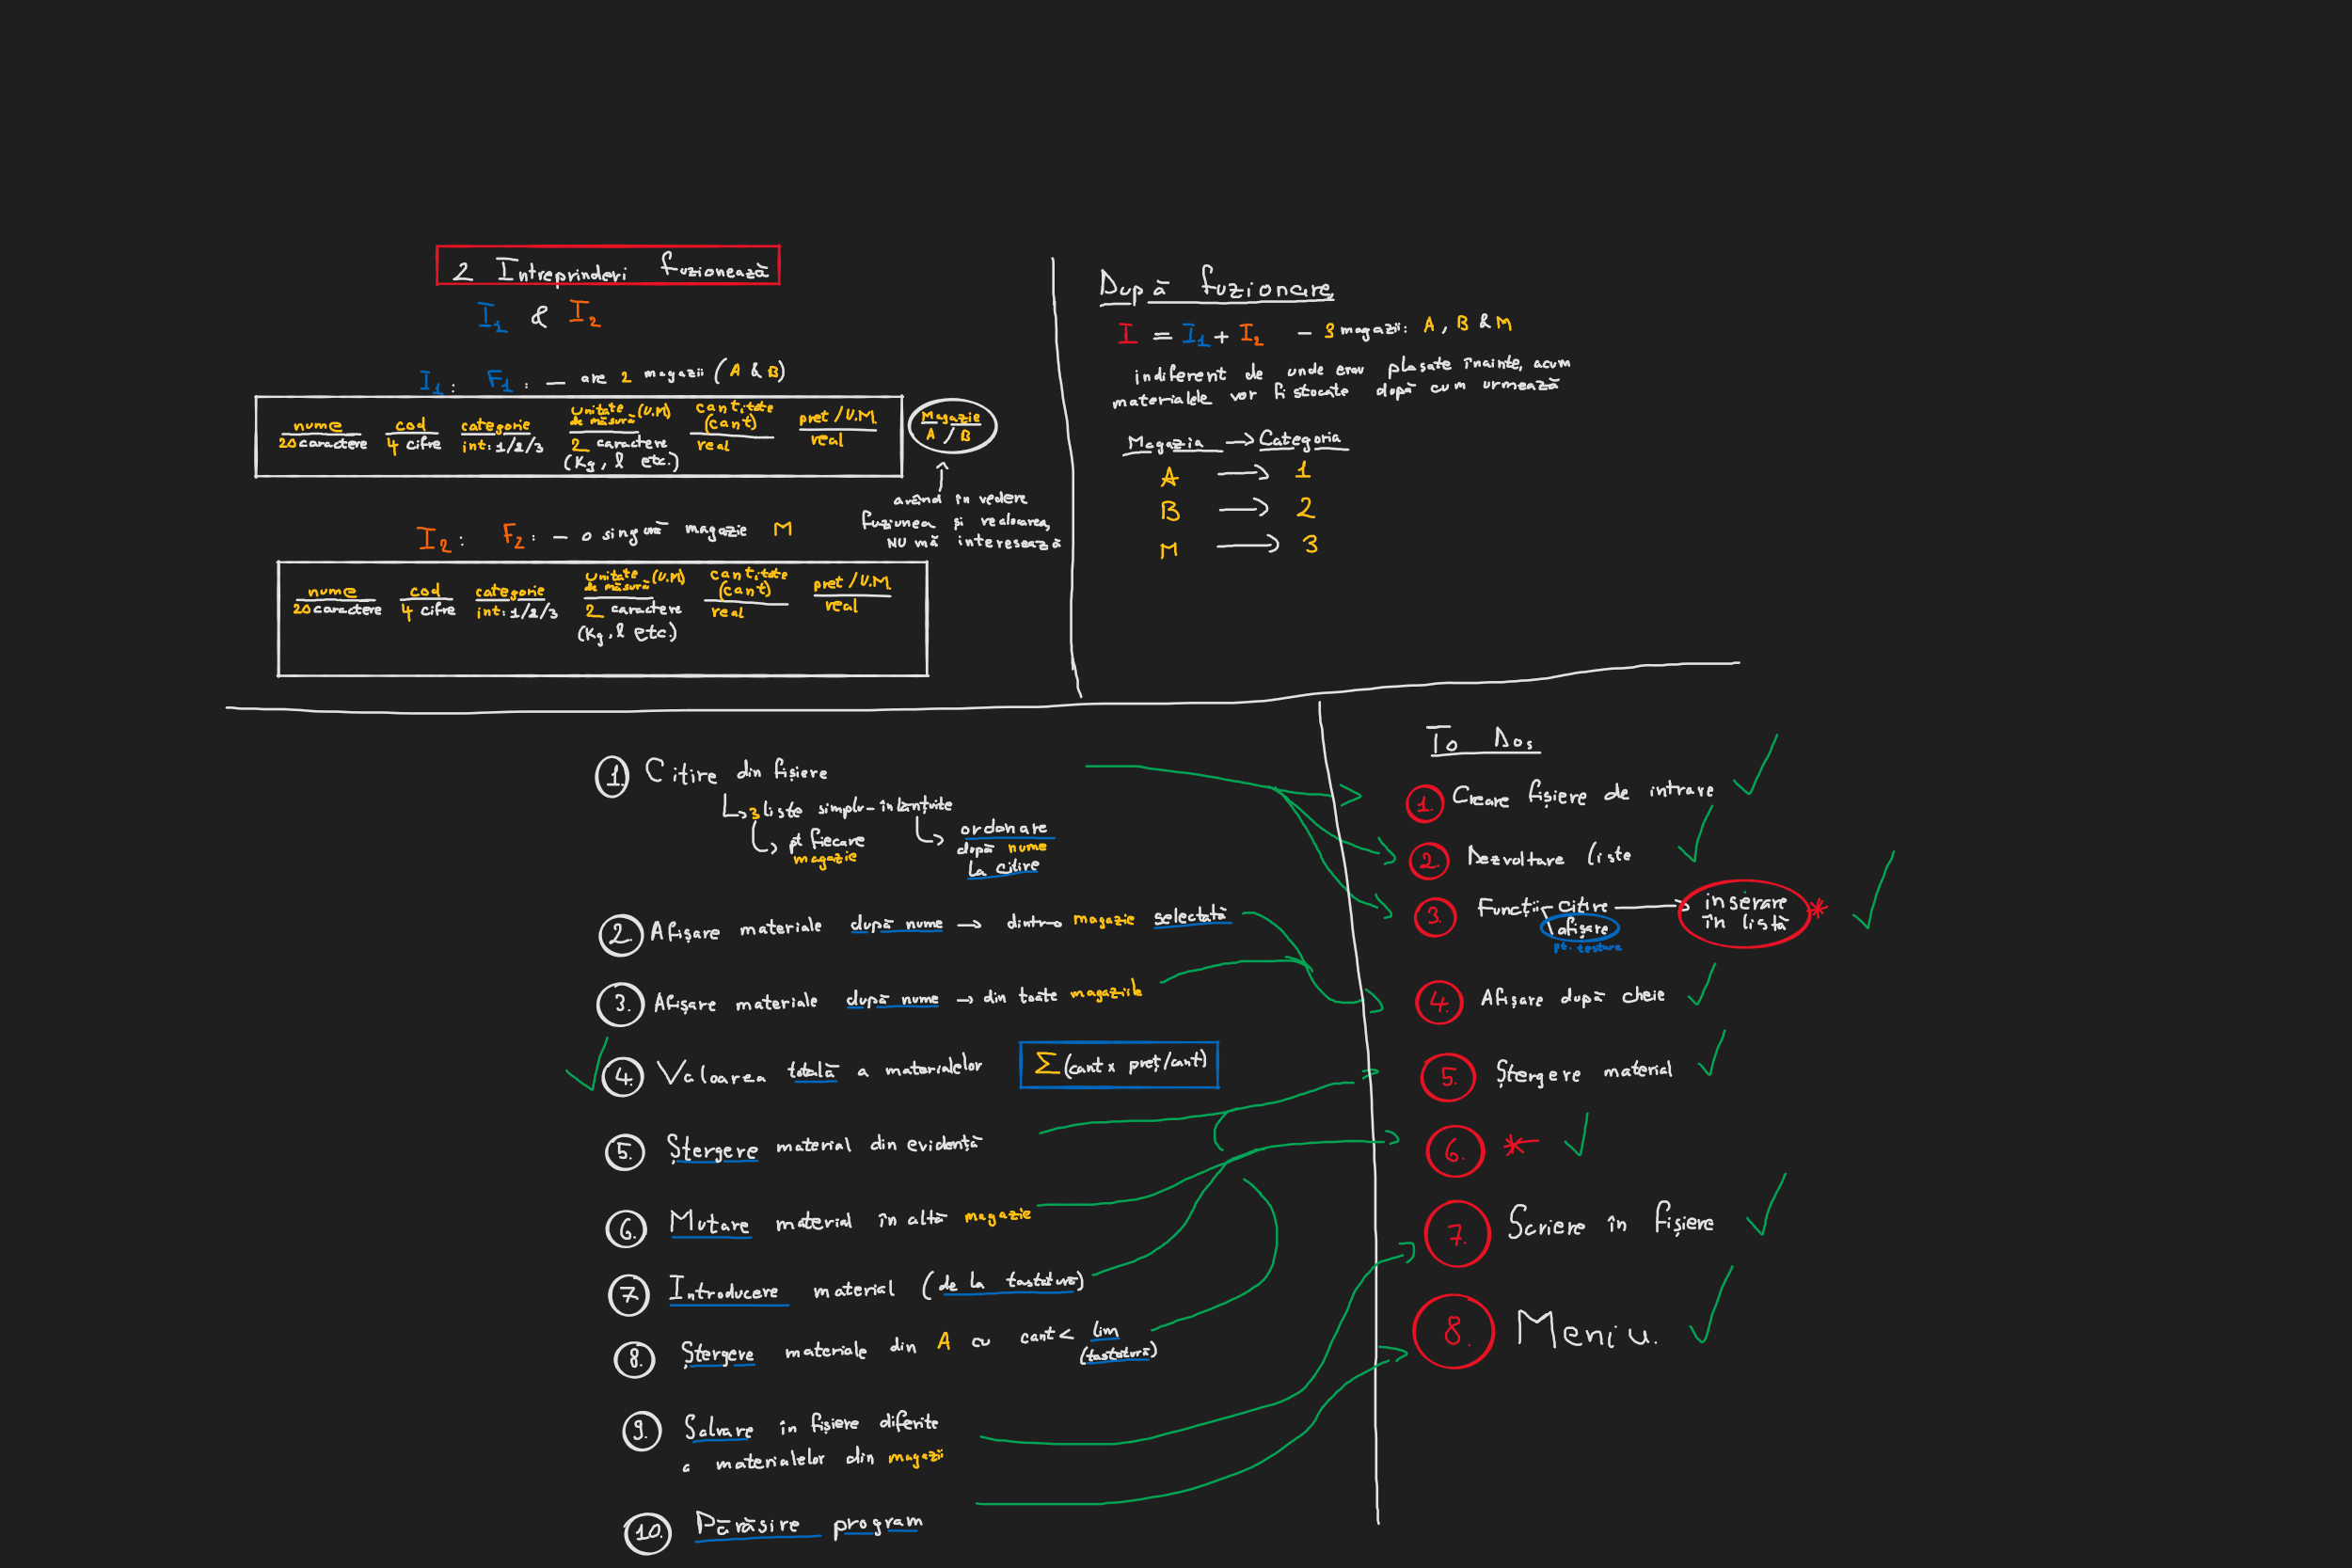 2 Intreprinderi fuzionează
I1 & I2
I1: F1: – are 2 magazii (A & B)
nume cod categorie Unitate de măsură (U.M) cantitate (cant) pret / U.M. Magazie
20 caractere 4 cifre int: 1/2/3 2 caractere real real A / B
(Kg, l etc.)
având în vedere
fuziunea și realocarea,
NU mă interesează
I2: F2: – o singură magazie M
nume cod categorie Unitate de măsură (U.M) cantitate (cant) pret / U.M.
20 caractere 4 cifre int: 1/2/3 2 caractere real real
(Kg, l etc.)
După fuzionare
I = I1 + I2 – 3 magazii: A, B & M
indiferent de unde erau plasate înainte, acum
materialele vor fi stocate după cum urmează
Magazia → Categoria
A → 1
B → 2
M → 3
1. Citire din fișiere
↳ 3 liste simplu-înlănțuite
↳ pt fiecare
magazie
↳ ordonare
după nume
la citire
2. Afișare materiale după nume → dintr-o magazie selectată
3. Afișare materiale după nume → din toate magaziile
4. Valoarea totală a materialelor Σ(cant x preț/cant)
5. Ștergere material din evidență
6. Mutare material în altă magazie
7. Introducere material (de la tastatură)
8. Ștergere materiale din A cu cant < lim
(tastatură)
9. Salvare în fișiere diferite
a materialelor din magazii
10. Părăsire program
To Dos
1. Creare fișiere de intrare
2. Dezvoltare liste
3. Funcții citire → inserare în listă *
afișare
pt. testare
4. Afișare după cheie
5. Ștergere material
6. *
7. Scriere în fișiere
8. Meniu.